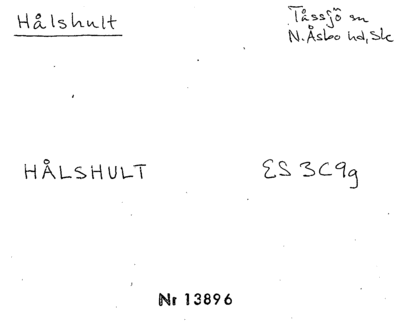 Hålshult
Tåssjö sn
N. Åsbo hd, Sk
HÅLSHULT
ES 3C9g
Nr 13896